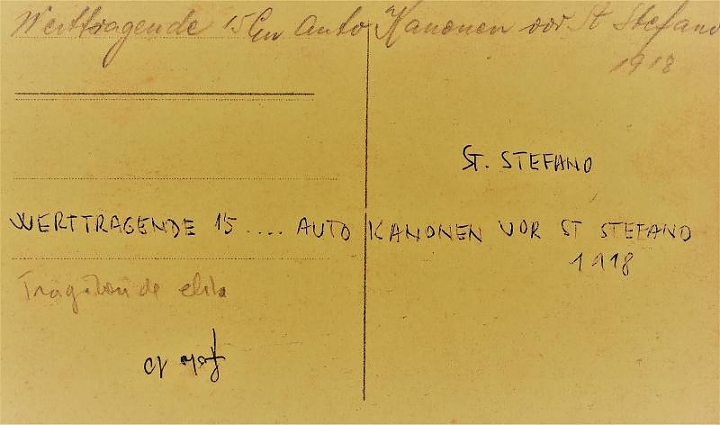 Werttragende 15 Cm Auto Kanonen vor St Stefano
1918
ST. STEFANO
WERTTRAGENDE 15 .... AUTO KANONEN VOR ST STEFANO
1918